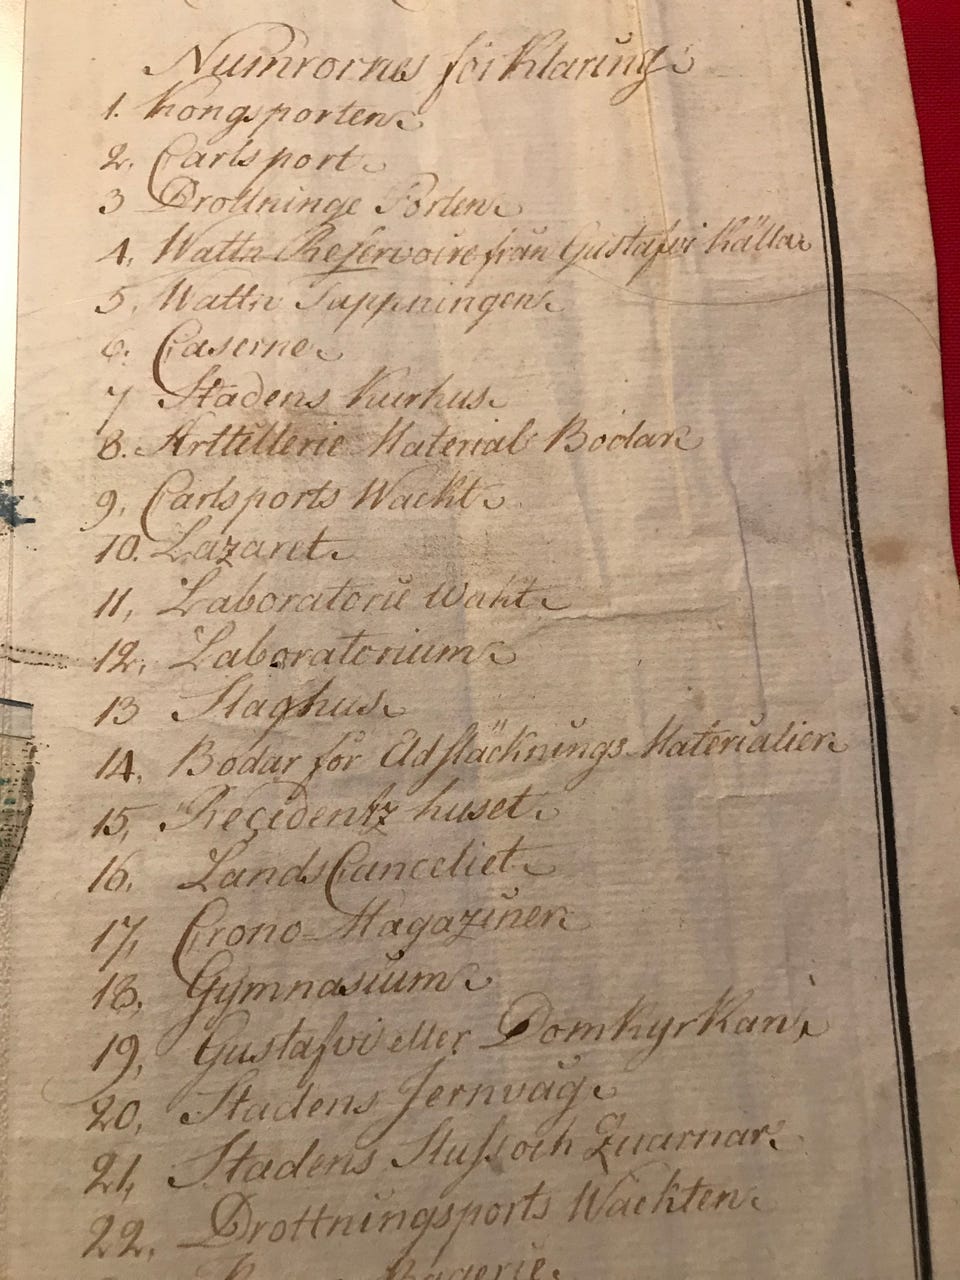 Numrornes förklaring
1. Kongsporten
2. Carlsport
3 Drottninge Porten
4, Wattn Reservoire från Gustafvi Källa
5, Wattn Tappningen
6. Caserne
7 Stadens Kurhus
8. Arttellerie Material Bodar
9, Carlsports Wackt
10. Lazaret
11, Laboratorie Wakt
12, Laboratorium
13 Slaghus
14, Bodar för Eldsläcknings Materialier
15, Recidentz huset
16. Lands Canceliet
17, Crono-Magaziner
18, Gymnasium
19, Gustafvi eller Domkyrkan
20, Stadens Jernvåg
21, Stadens Sluss och Quarnar
22, Drottningsports Wackten
Bagerie